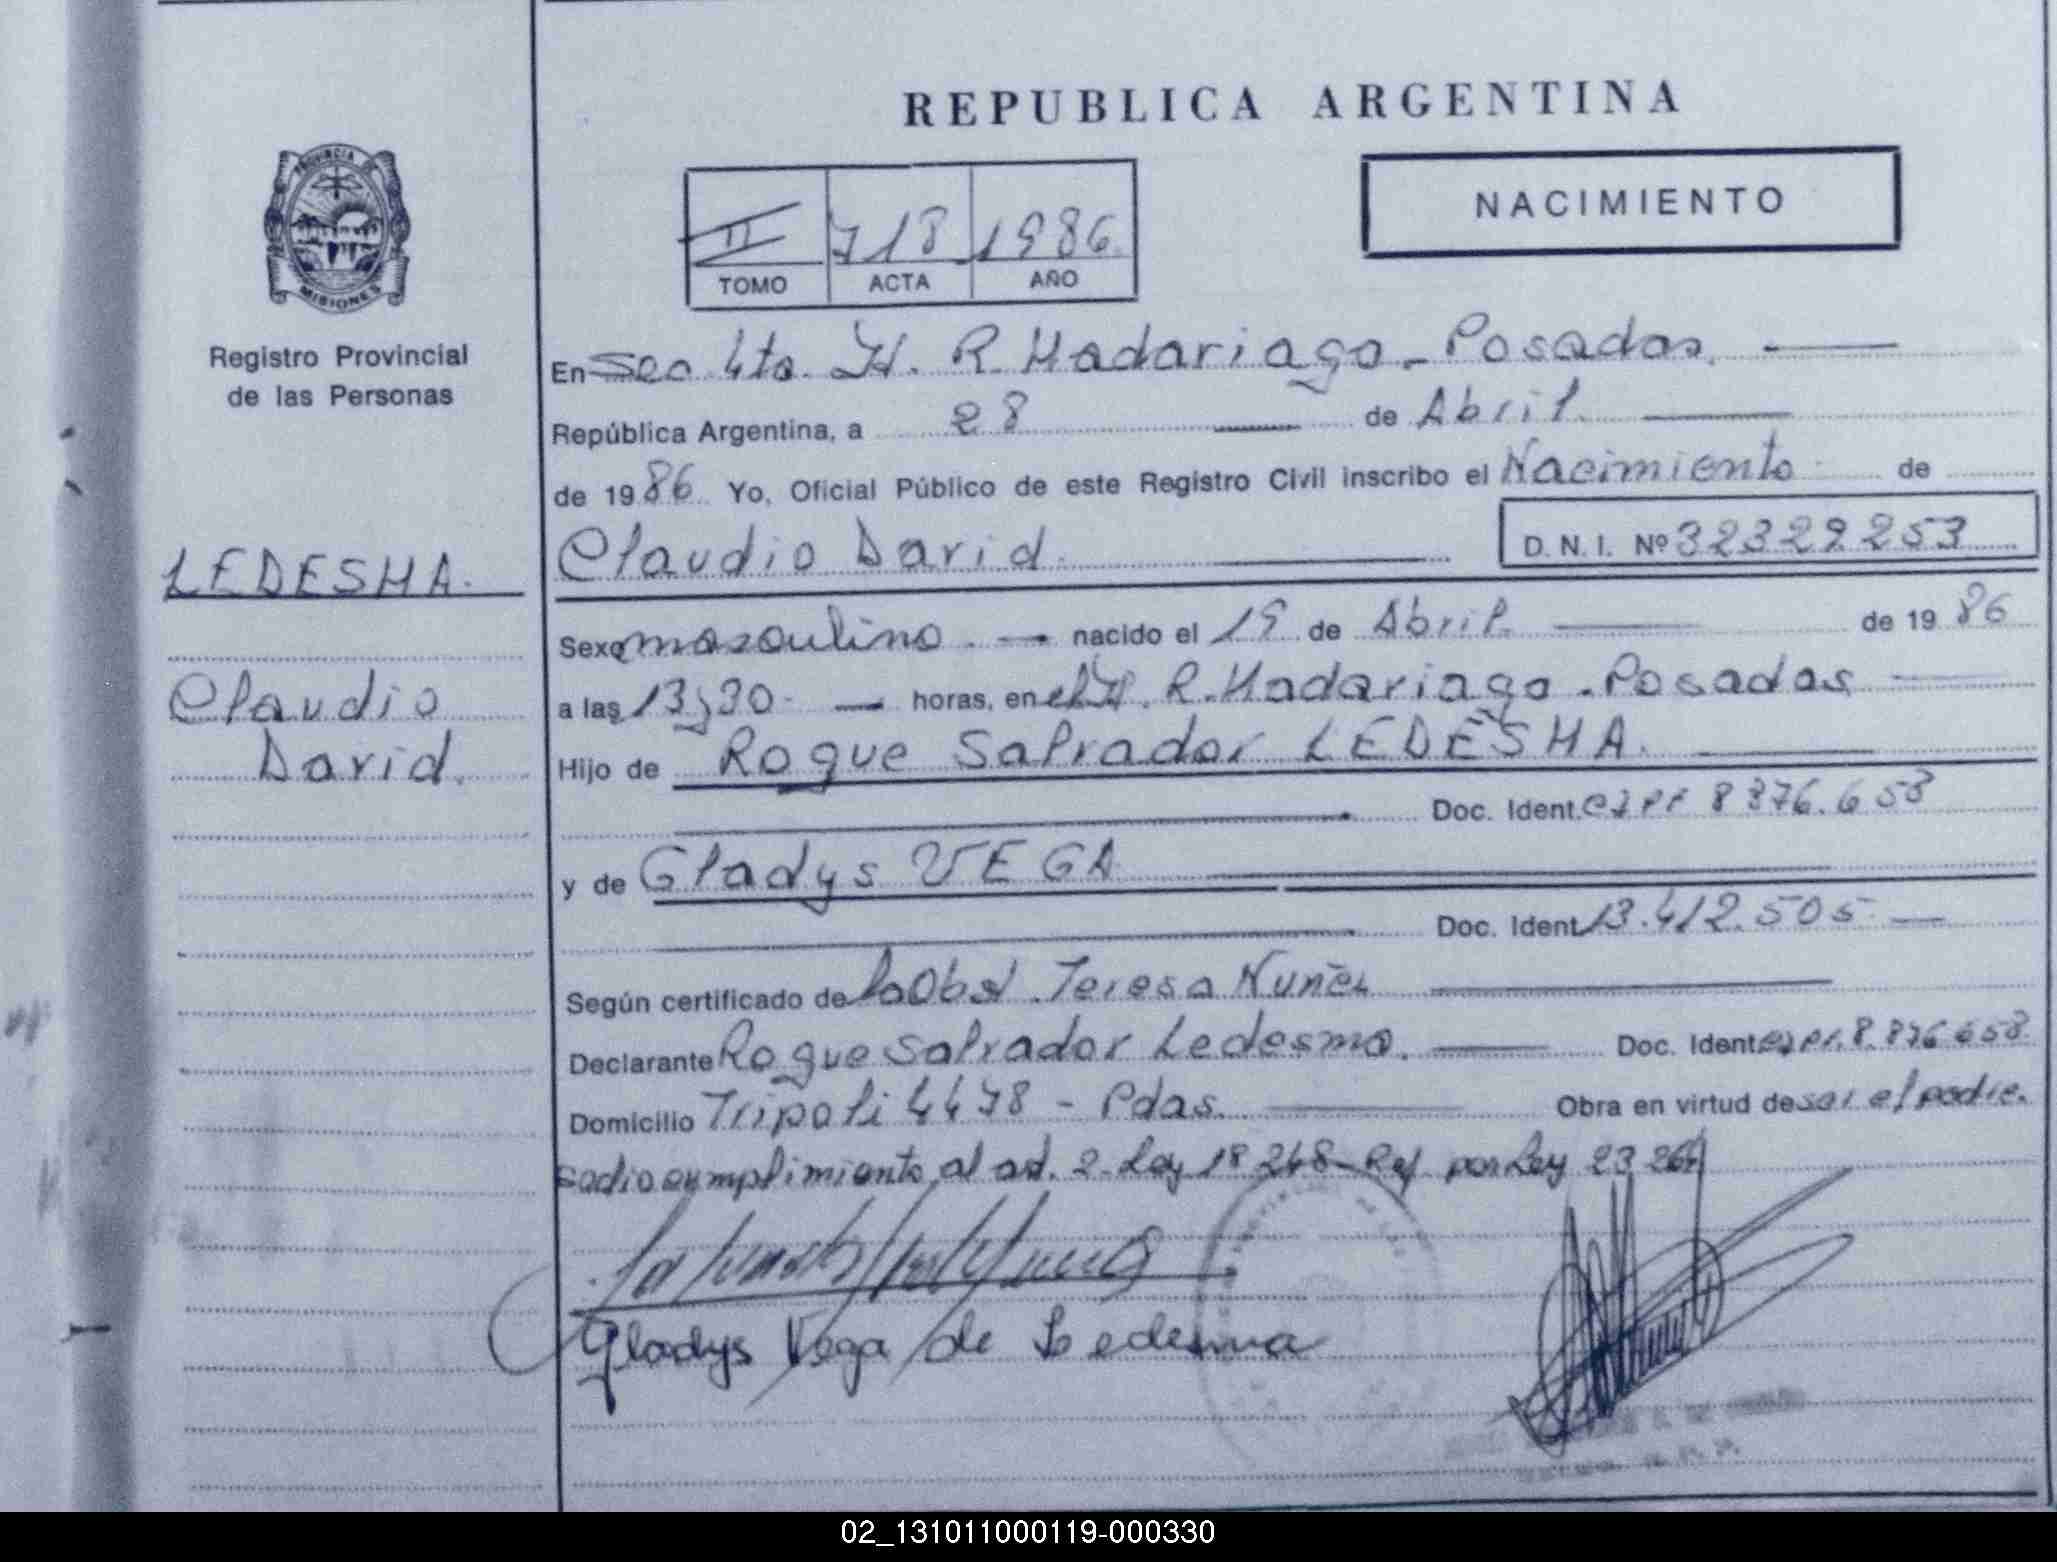 REPUBLICA ARGENTINA
NACIMIENTO
II 718 1986
TOMO ACTA AÑO
PROVINCIA DE
MISIONES
Registro Provincial
de las Personas
LEDESMA.
Claudio
David.
En Sec 4ta. H. R. Madariaga - Posadas.
República Argentina, a 28 de Abril
de 1986 Yo, Oficial Público de este Registro Civil inscribo el Nacimiento de
Claudio David D. N. I. Nº 32329253
Sexo masculino nacido el 19 de Abril de 1986
a las 13,30 horas, en el H. R. Madariaga - Posadas
Hijo de Roque Salvador LEDESMA.
Doc. Ident.
y de Gladys VEGA
Doc. Ident 13.412.505
Según certificado de la Obst. Teresa Nuñez
Declarante Roque Salvador Ledesma. Doc. Ident
Domicilio Tripoli 4478 - Pdas. Obra en virtud de ser el padre.
se dio cumplimiento al art. 2 - Ley 18248 - Ref. por Ley 23264
Gladys Vega de Ledesma
02_131011000119-000330